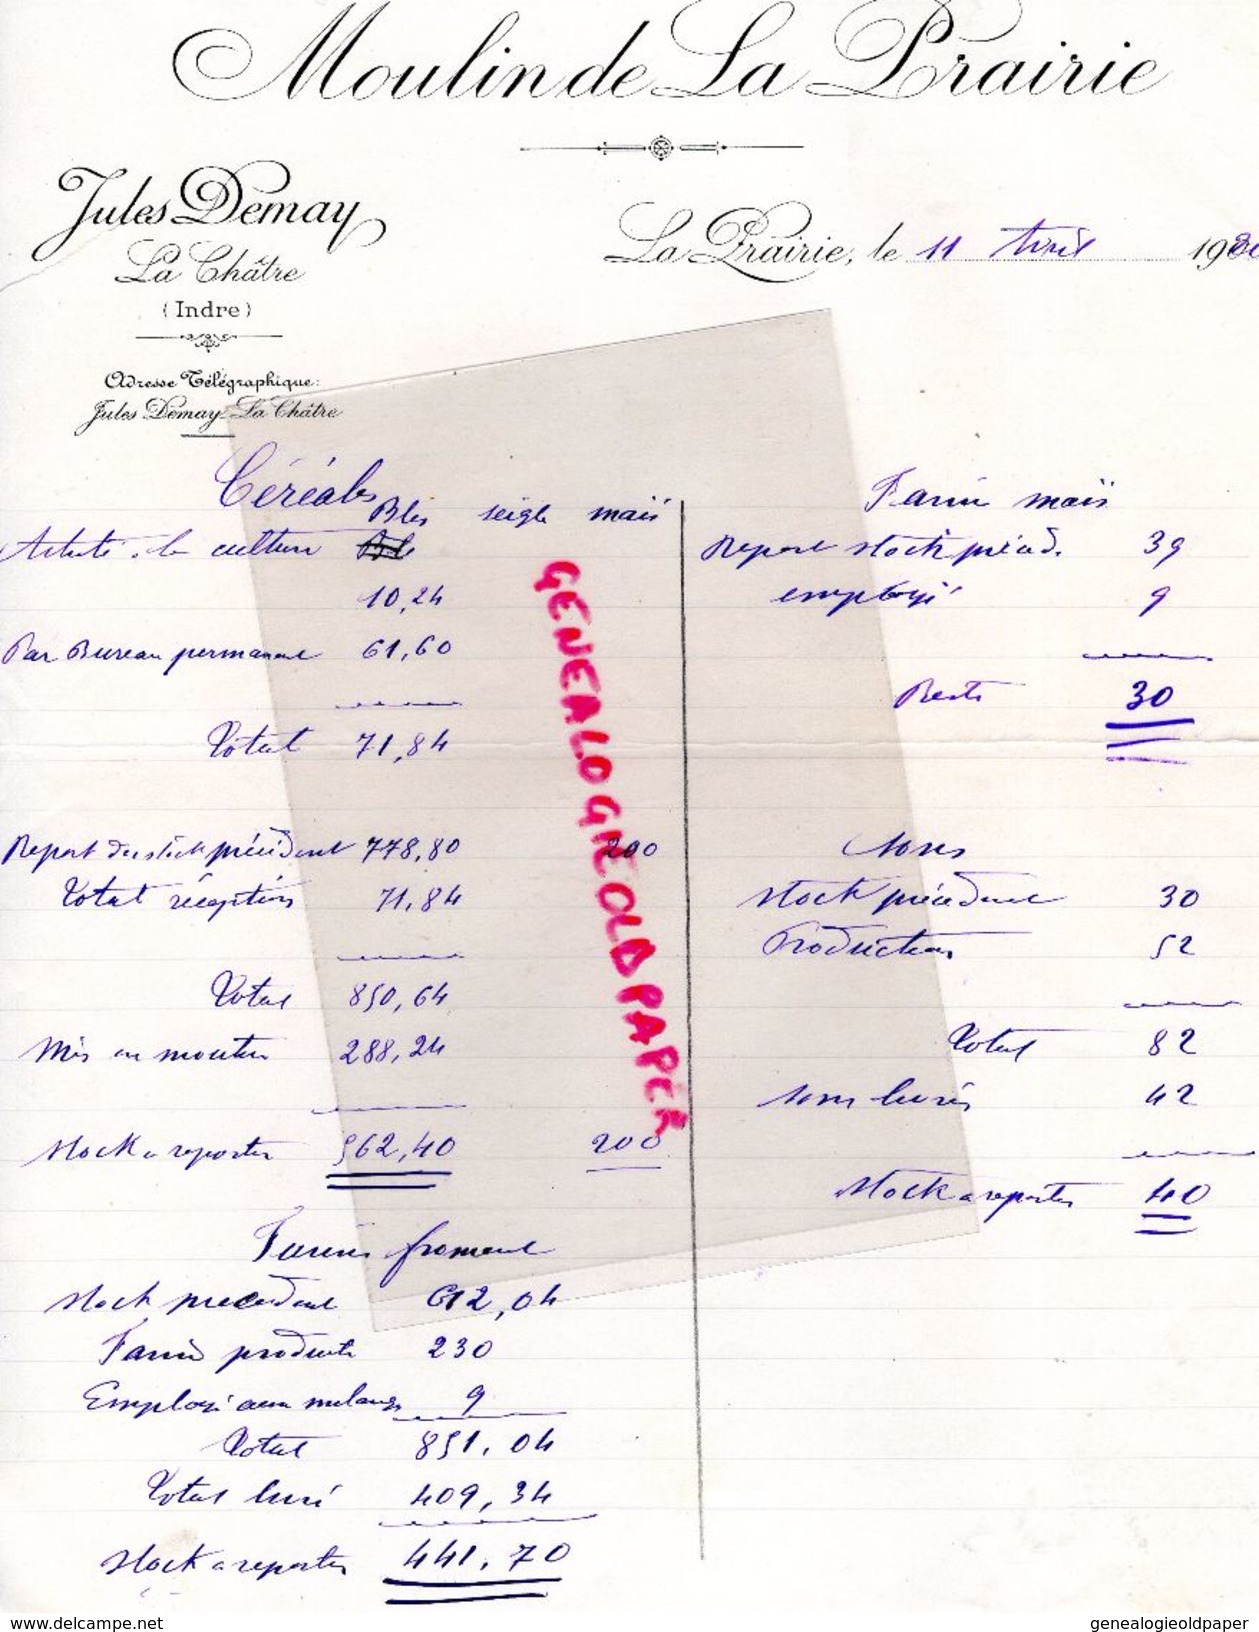 Moulin de La Prairie
Jules Demay
La Châtre
(Indre)
Adresse Télégraphique:
Jules Demay-La Châtre
La Prairie, le 11 Avril 19
Céréales
Bles seigle maïs
culture
10,24
Par Bureau permanent 61,60
Total 71,84
Report du stock précédent 778,80 200
Total réception 71,84
Total 850,64
Mis en mouture 288,24
Stock a reporter 562,40 200
Farine froment
Stock precedent 612,04
Farine produite 230
Employé aux melanges 9
Total 851,04
Total livré 409,34
Stock a reporter 441,70
Farine maïs
Report stock précéd. 39
employé 9
Reste 30
Sons
Stock précédent 30
Production 52
Total 82
Sons livrés 42
Stock a reporter 40
GENEALOGIEOLDPAPER
www.delcampe.net
genealogieoldpaper